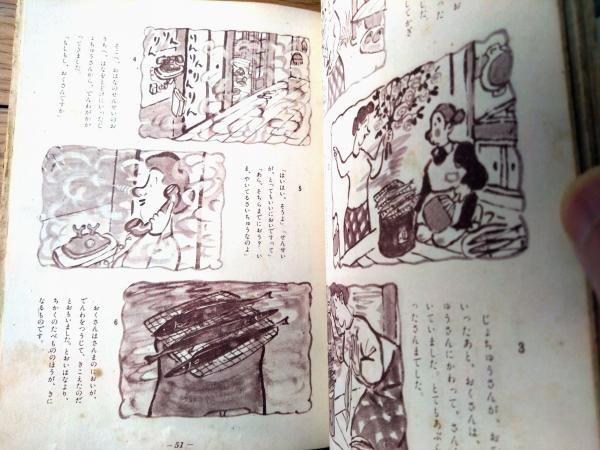 お
した。
してかぎ
3
じょちゅうさんが、お
いったあと、おくさんは、
ゅうさんにかわって、さん
いていました。とてもあぶ
ったさんまでした。
4
りんりんりんりん
りんりん
そこへ、おはなのせんせいのお
うちへ、はなをとどけにいったじ
ょちゅうさんから、でんわがかか
ってきました。
「もしもし、おくさんですか
5
「はいはい、そうよ」「せんせい
が、とってもいいにおいですって」
「あら、そちらまでにおう？ い
ま、やいてるさいちゅうなのよ」
6
おくさんはさんまのにおいが、
でんわをつうじて、きこえたのだ
とおもいました。とおいはなより、
ちかくのたべもののほうが、きに
なるものです。
— 51 —